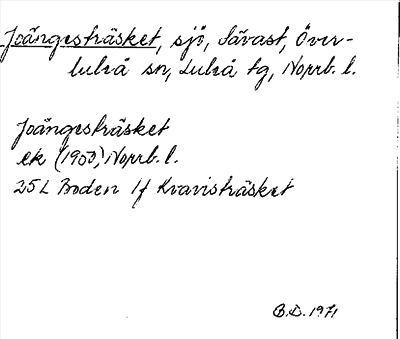 Joängesträsket, sjö, Sävast, Över-
luleå sn, Luleå tg, Norrb. l.
Joängesträsket
ek (1950) Norrb. l.
25L Boden 1f Kvavisträsket
B.D. 1971